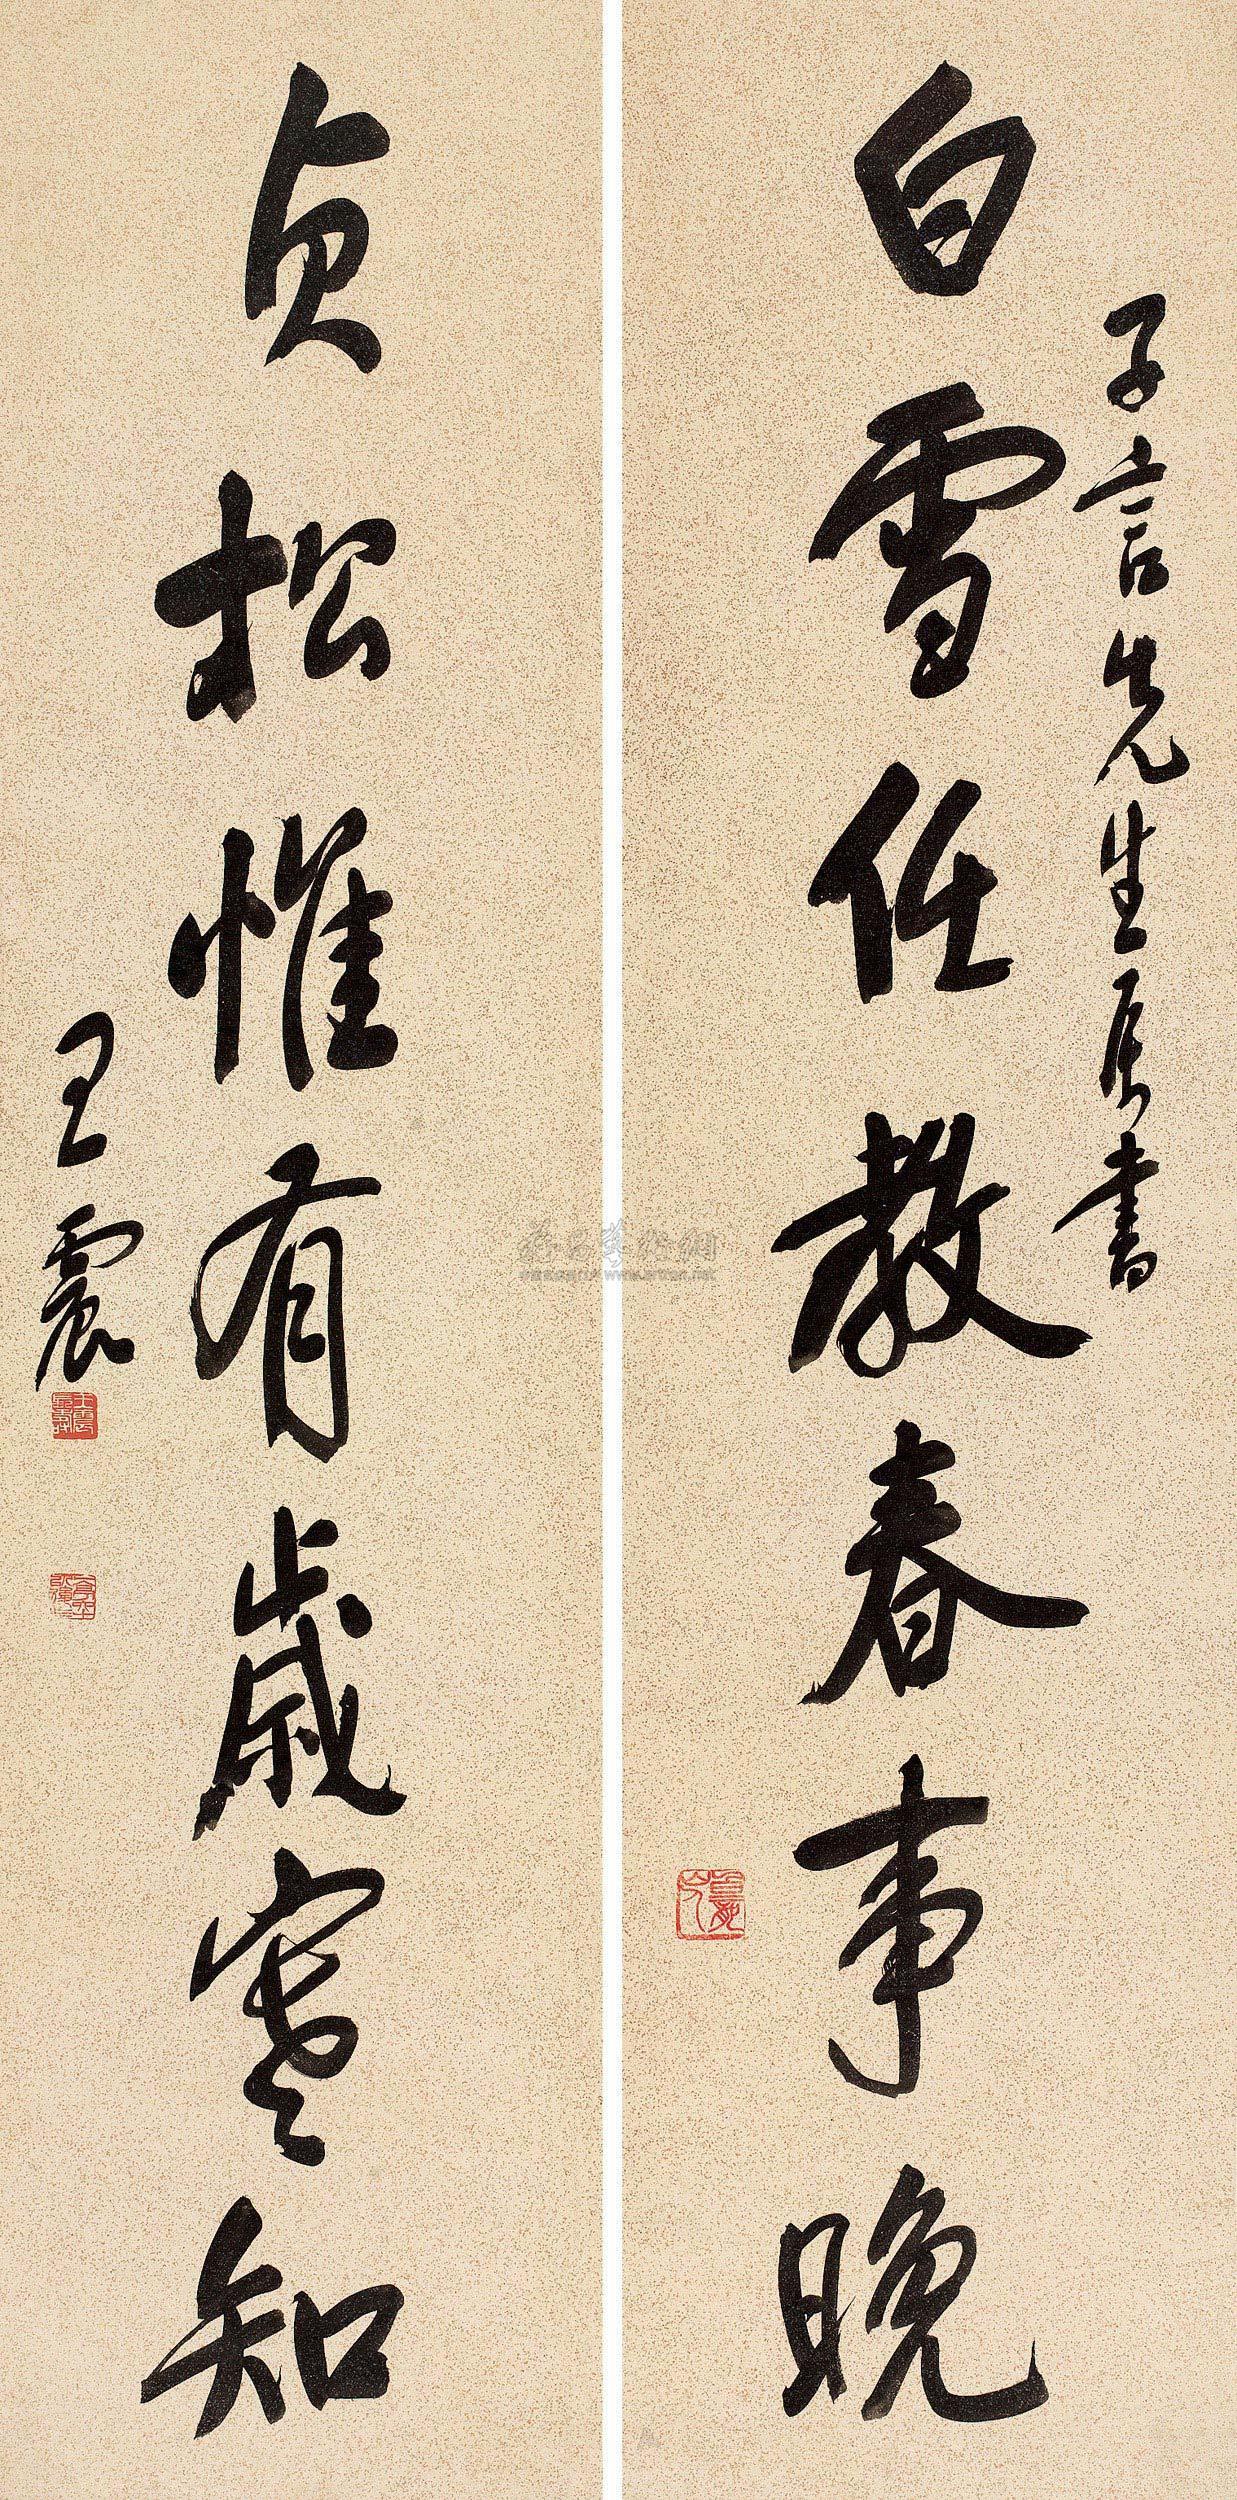 子言先生屬書
白雪任教春事晚
貞松惟有歲寒知
王震